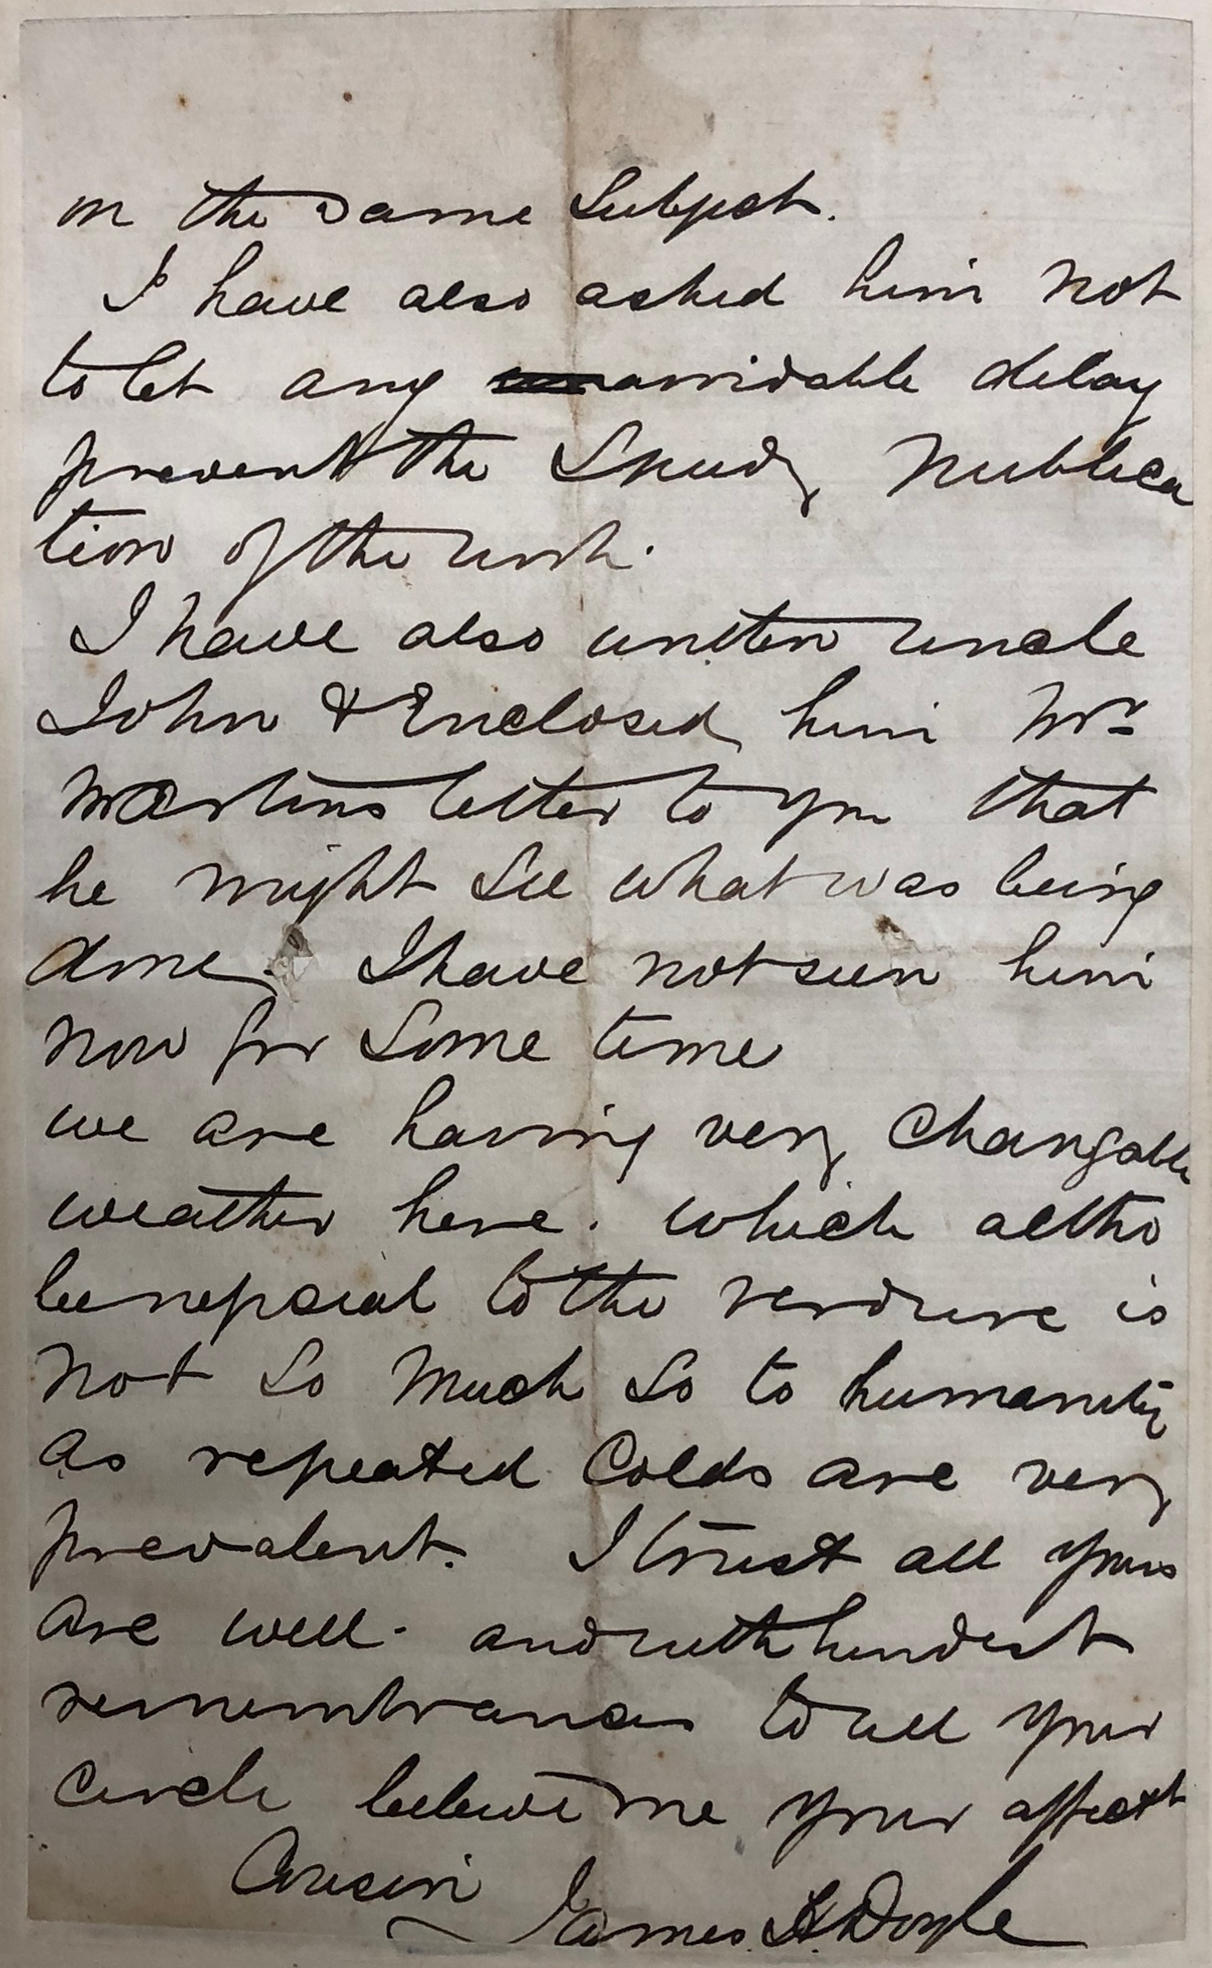 on the same Subject.
I have also asked him not
to let any avoidable delay
prevent the Speedy Publica
tion of the work.
I have also written uncle
John & Enclosed him Mr
Martins letter to you that
he might See what was being
done. I have not seen him
now for Some time
we are having very Changable
weather here. which altho
beneficial to the verdure is
not So Much So to humanity
as repeated Colds are very
prevalent. I trust all yours
are well. and with kindest
remembrances to all your
Circle believe me your affect
Cousin
James Doyle